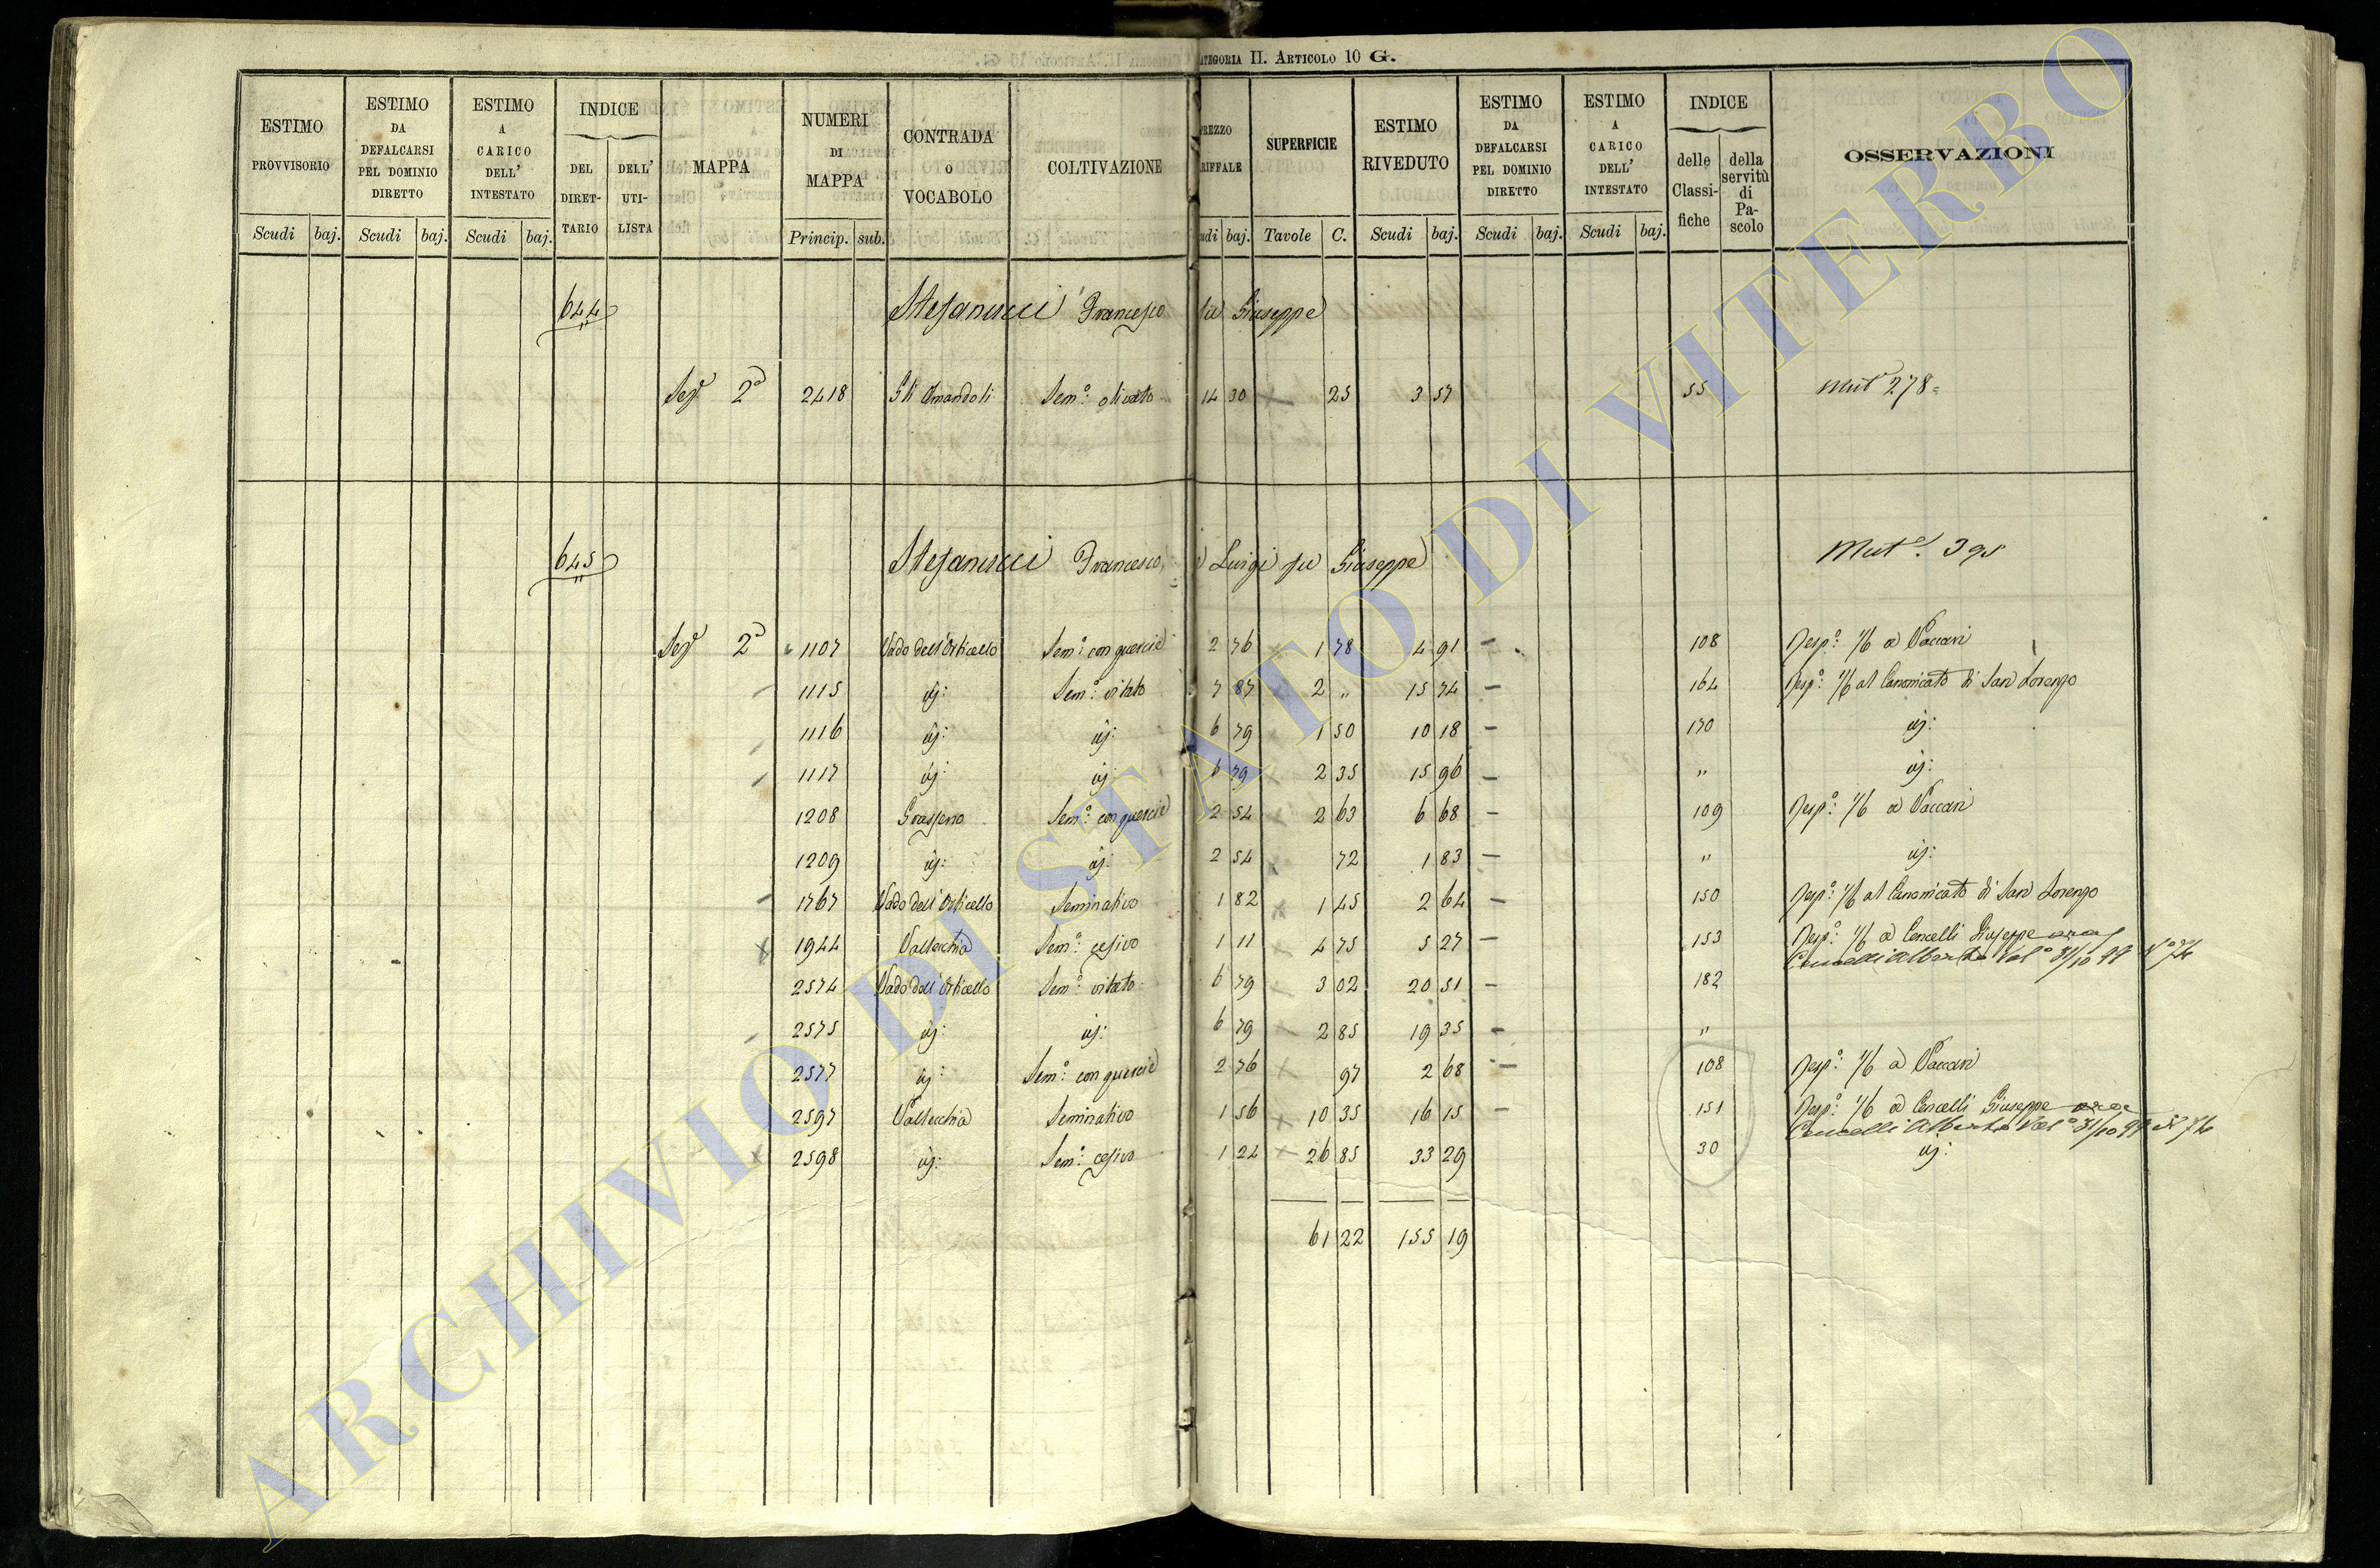 CATEGORIA II. ARTICOLO 10 G.
ESTIMO PROVVISORIO Scudi baj.
ESTIMO DA DEFALCARSI PEL DOMINIO DIRETTO Scudi baj.
ESTIMO A CARICO DELL' INTESTATO Scudi baj.
INDICE DEL DIRETTARIO DELL' UTILISTA
MAPPA
NUMERI DI MAPPA Princip. sub.
CONTRADA O VOCABOLO
COLTIVAZIONE
PREZZO TARIFFALE Scudi baj.
SUPERFICIE Tavole C.
ESTIMO RIVEDUTO Scudi baj.
ESTIMO DA DEFALCARSI PEL DOMINIO DIRETTO Scudi baj.
ESTIMO A CARICO DELL' INTESTATO Scudi baj.
INDICE delle Classifiche della servitù di Pascolo
OSSERVAZIONI
644 Stefanucci Francesco fu Giuseppe
Sez.e 2a 2418 Gli Amandoli Sem.o olivato 14 30 25 3 57 55 Mut 278
645 Stefanucci Francesco, e Luigi fu Giuseppe Mut.e 395
Sez.e 2a 1107 Vado dell'Orticello Sem.o con quercie 2 76 1 78 4 91 108 Resp.o 1/6 a Vaccari
1115 id: Sem.o vitato 7 87 2 " 15 74 164 Resp.o 1/6 al Canonicato di San Lorenzo
1116 id: id: 6 79 1 50 10 18 170 id:
1117 id: id: 6 79 2 35 15 96 " id:
1208 Grasseno Sem.o con quercie 2 54 2 63 6 68 109 Resp.o 1/6 a Vaccari
1209 id: id: 2 54 72 1 83 " id:
1767 Vado dell'Orticello Seminativo 1 82 1 45 2 64 150 Resp.o 1/6 al Canonicato di San Lorenzo
1944 Valsecchia Sem.o cesivo 1 11 4 75 5 27 153 Resp.o 1/6 a Cencelli Giuseppe
Cencelli Alberto Vol.o 31/10 99 N.o 74
2574 Vado dell'Orticello Sem.o vitato 6 79 3 02 20 51 182
2575 id: id: 6 79 2 85 19 35 "
2577 id: Sem.o con quercie 2 76 97 2 68 108 Resp.o 1/6 a Vaccari
2597 Valsecchia Seminativo 1 56 10 35 16 15 151 Resp.o 1/6 a Cencelli Giuseppe
Cencelli Alberto Vol.o 31/10 99 N 74
2598 id: Sem.o cesivo 1 24 26 85 33 29 30 id:
61 22 155 19
ARCHIVIO DI STATO DI VITERBO